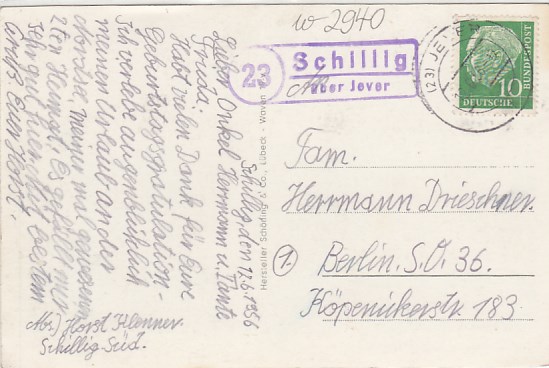 w 2940
23
Schillig
über Jever
(23) JEVER
DEUTSCHE
BUNDESPOST
10
Schillig, den 12.6.1956
Lieber Onkel Hermann u. Tante
Truda.
Habt vielen Dank für Eure
Geburtstagsgratulation.
Ich verlebe augenblicklich
meinen Urlaub an der
Nordsee, meiner mal gewesenen
2ten Heimat. Es gefällt mir
sehr gut hier. Mit bestem
Gruß Euer Horst.
Abs) Horst Klenner.
Schillig-Süd.
Hersteller Schöning & Co., Lübeck
Fam.
Herrmann Drieschner.
① Berlin. S.O. 36.
Köpenickerstr. 183.